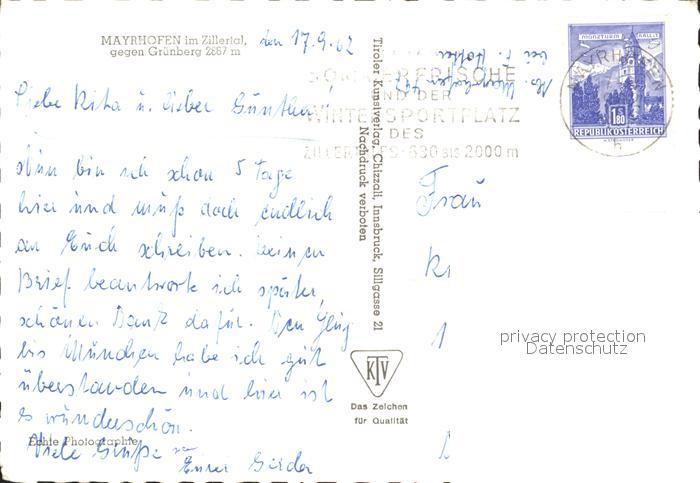 MAYRHOFEN im Zillertal,
gegen Grünberg 2867 m
den 17.9.62
Liebe Rita u. lieber Günther!
Nun bin ich schon 5 Tage
hier und muß doch endlich
an Euch schreiben. Deinen
Brief beantworte ich später,
schönen Dank dafür. Den Flug
bis München habe ich gut
überstanden und hier ist
es wunderschön.
Viele Grüße
Eure Gerda
Echte Photographie
Tiroler Kunstverlag, Chizzali, Innsbruck, Sillgasse 21
Nachdruck verboten
KTV
Das Zeichen
für Qualität
SOMMERFRISCHE
UND DER
WINTERSPORTPLATZ
DES
ZILLERTALES·630 BIS 2000 m
MAYRHOFEN
h
MÜNZTURM HALL I.T.
1.80
REPUBLIK ÖSTERREICH
Frau
privacy protection
Datenschutz